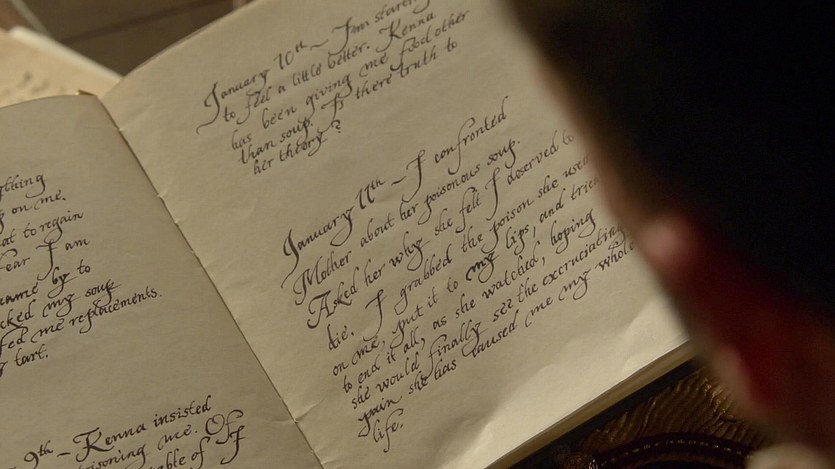 ything
on me.
at to regain
Fear I am
came by to
cked my soup
fed me replacements.
tart.
9th – Kenna insisted
oisoning me. Of
able of
January 10th – I am
to feel a little better. Kenna
has been giving me food other
than soup. Is there truth to
her theory?
January 11th – I confronted
Mother about her poisonous soup.
Asked her why she felt I deserved to
die. I grabbed the poison she used
on me, put it to my lips, and tried
to end it all, as she watched, hoping
she would finally see the excruciating
pain she has caused me my whole
life.